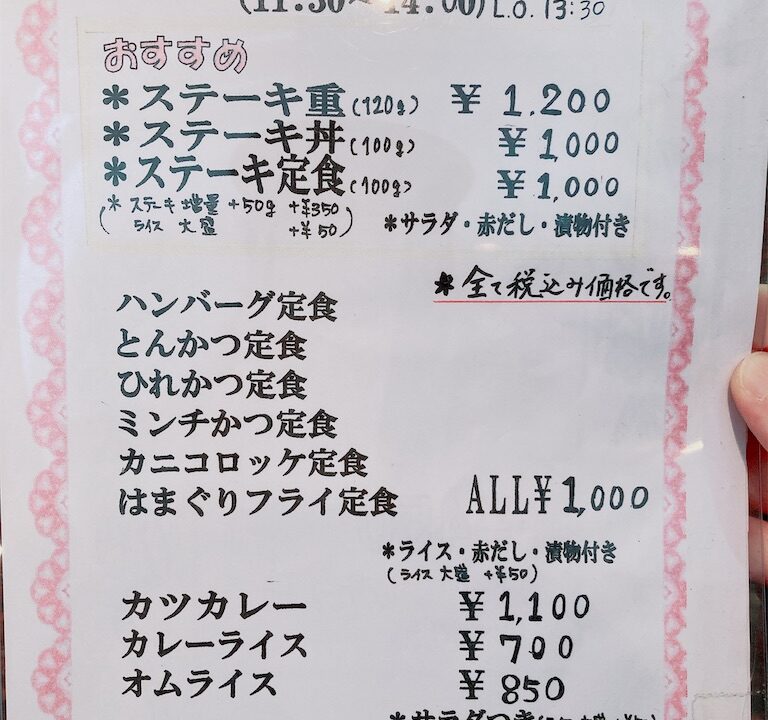 (11:30～14:00) L.O. 13:30
おすすめ
＊ステーキ重(120g) ¥1,200
＊ステーキ丼(100g) ¥1,000
＊ステーキ定食(100g) ¥1,000
(＊ステーキ増量 +50g +¥350
ライス 大盛 +¥50)
＊サラダ・赤だし・漬物付き
＊全て税込み価格です。
ハンバーグ定食
とんかつ定食
ひれかつ定食
ミンチかつ定食
カニコロッケ定食
はまぐりフライ定食 ALL¥1,000
＊ライス・赤だし・漬物付き
(ライス 大盛 +¥50)
カツカレー ¥1,100
カレーライス ¥700
オムライス ¥850
＊サラダつき